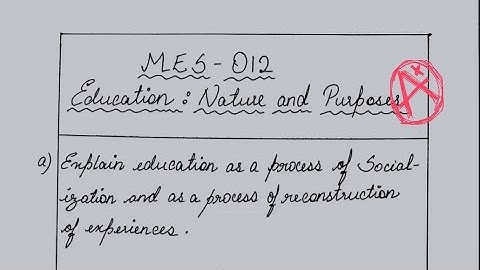 MES-012
Education : Nature and Purposes
a) Explain education as a process of Social-
ization and as a process of reconstruction
of experiences.